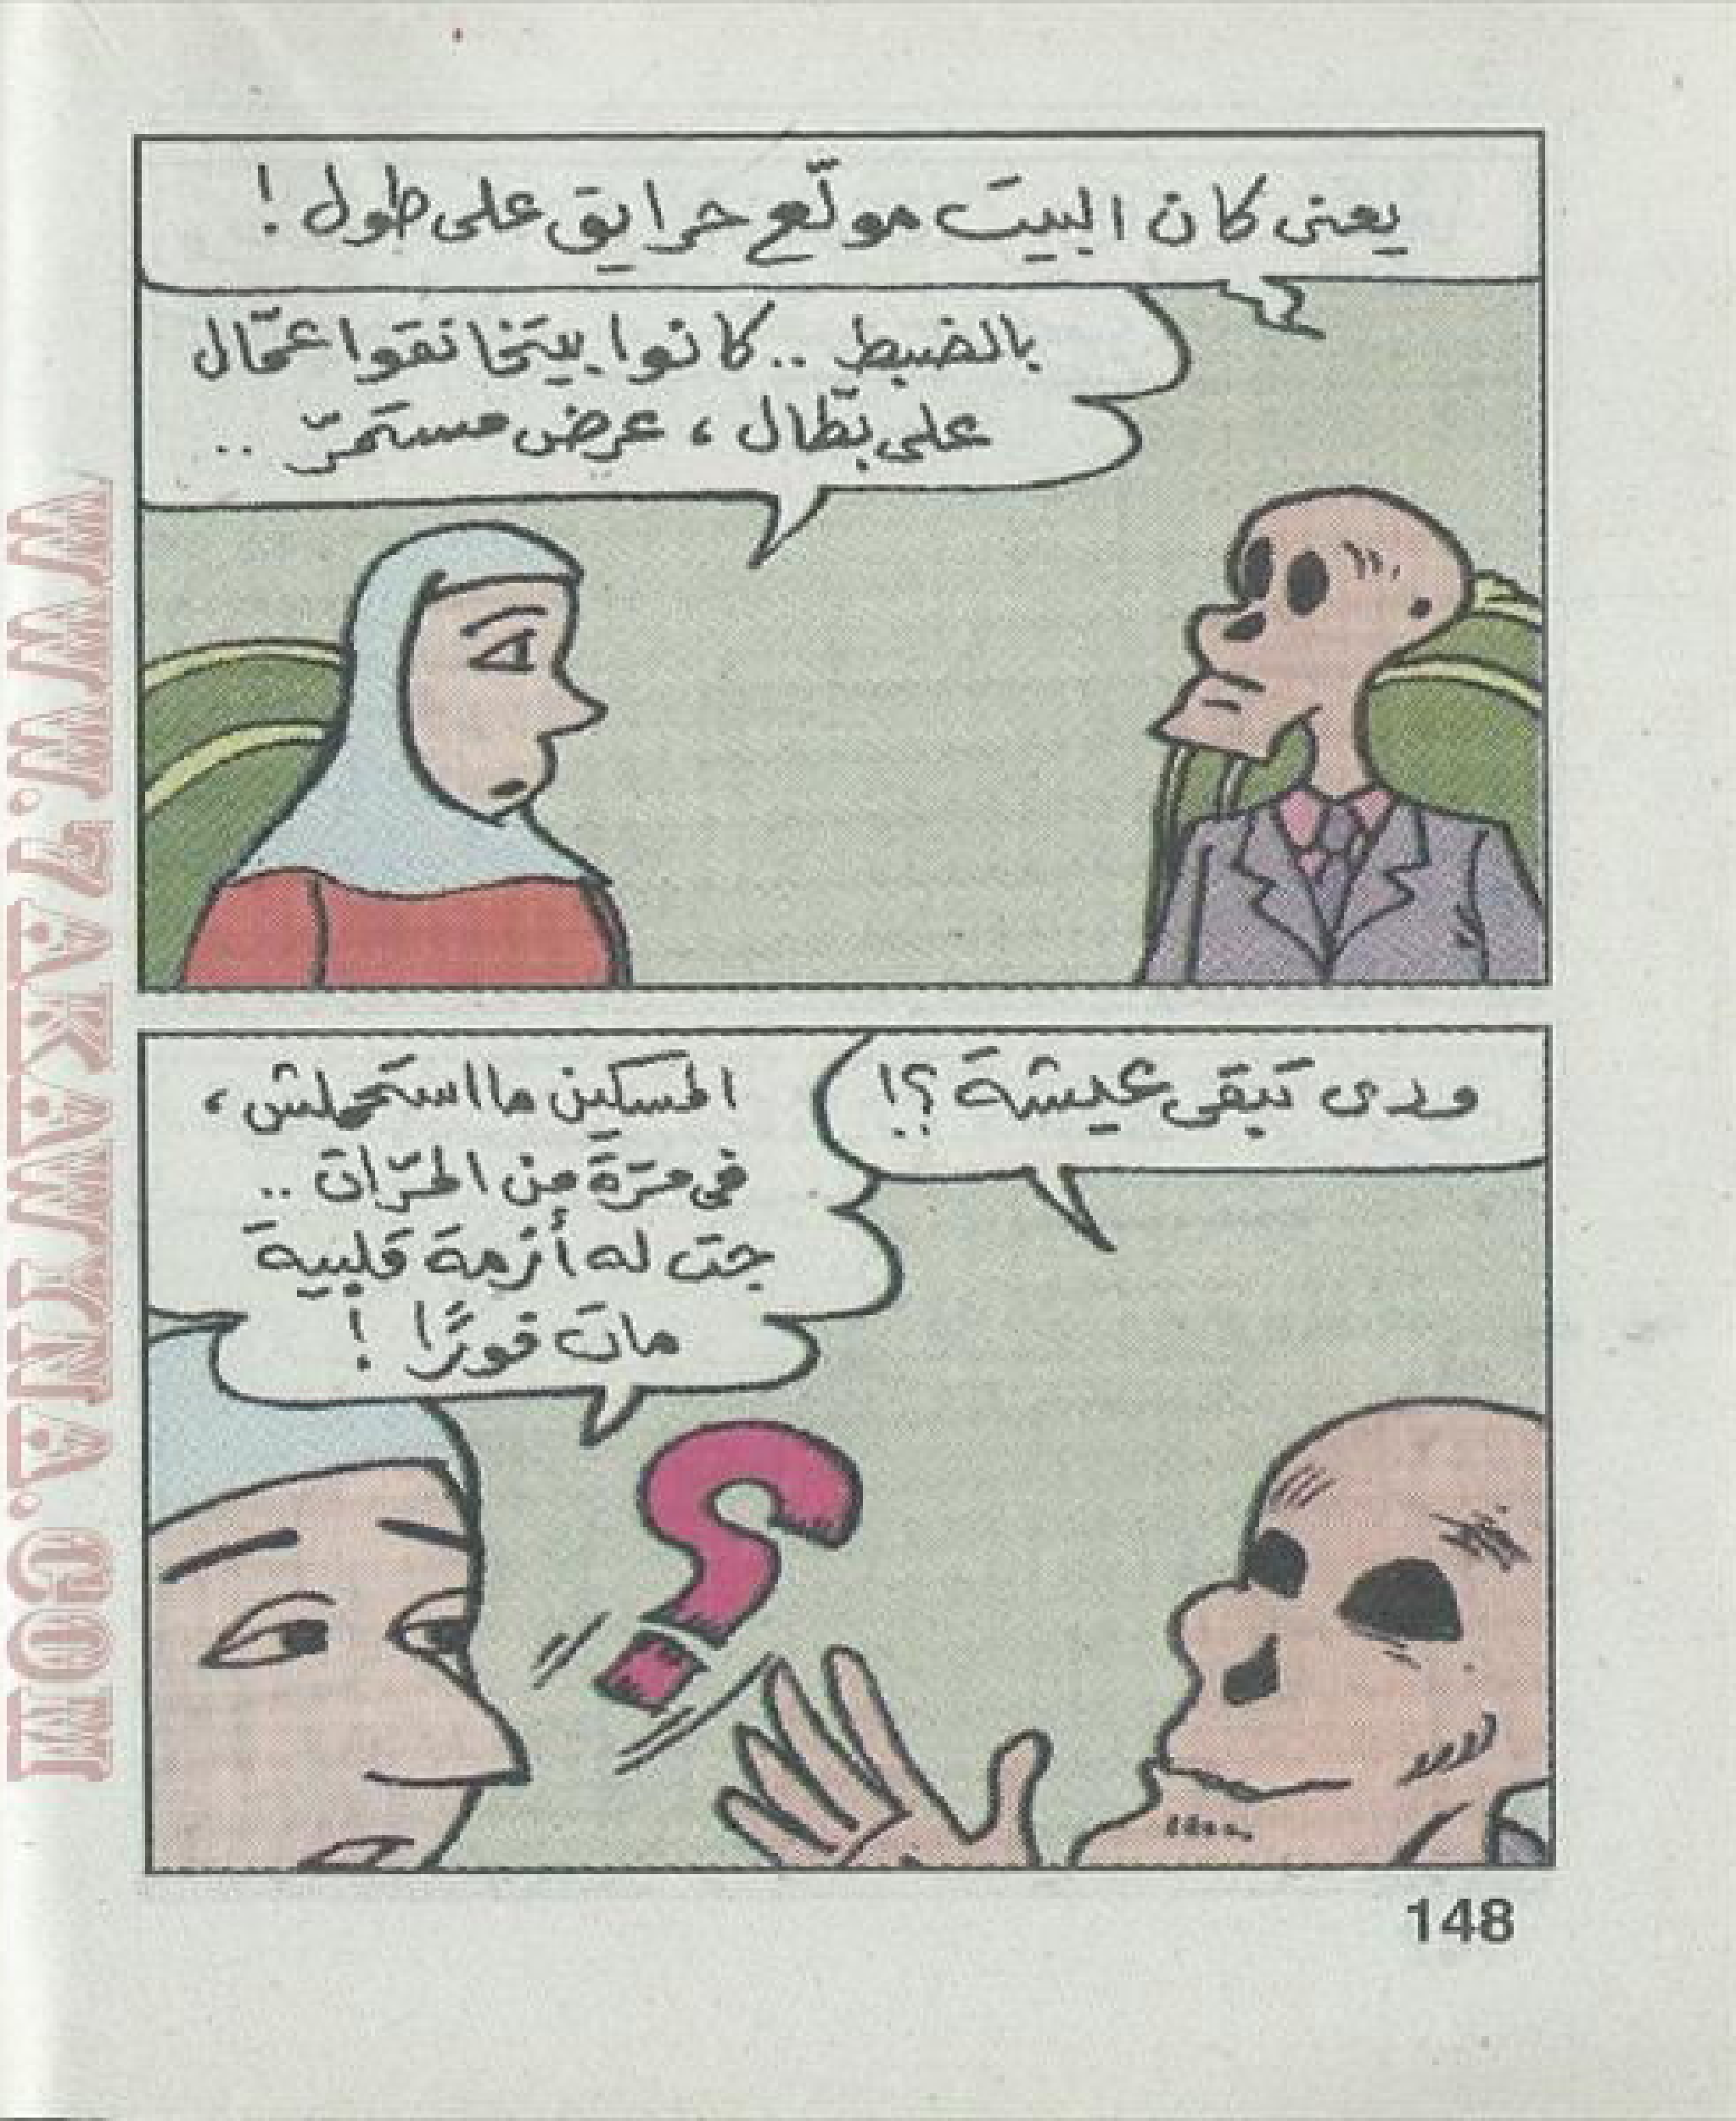 يعنى كان البيت مولّع حرايق على طول!
بالضبط .. كانوا بيتخانقوا عمّال
على بطّال ، عرض مستمرّ ..
ودى تبقى عيشة ؟!
المسكين ما استحملش ،
فى مرّة من المرّات ..
جت له أزمة قلبية
مات فورًا !
؟
148
WWW.7AKAWINNA.COM